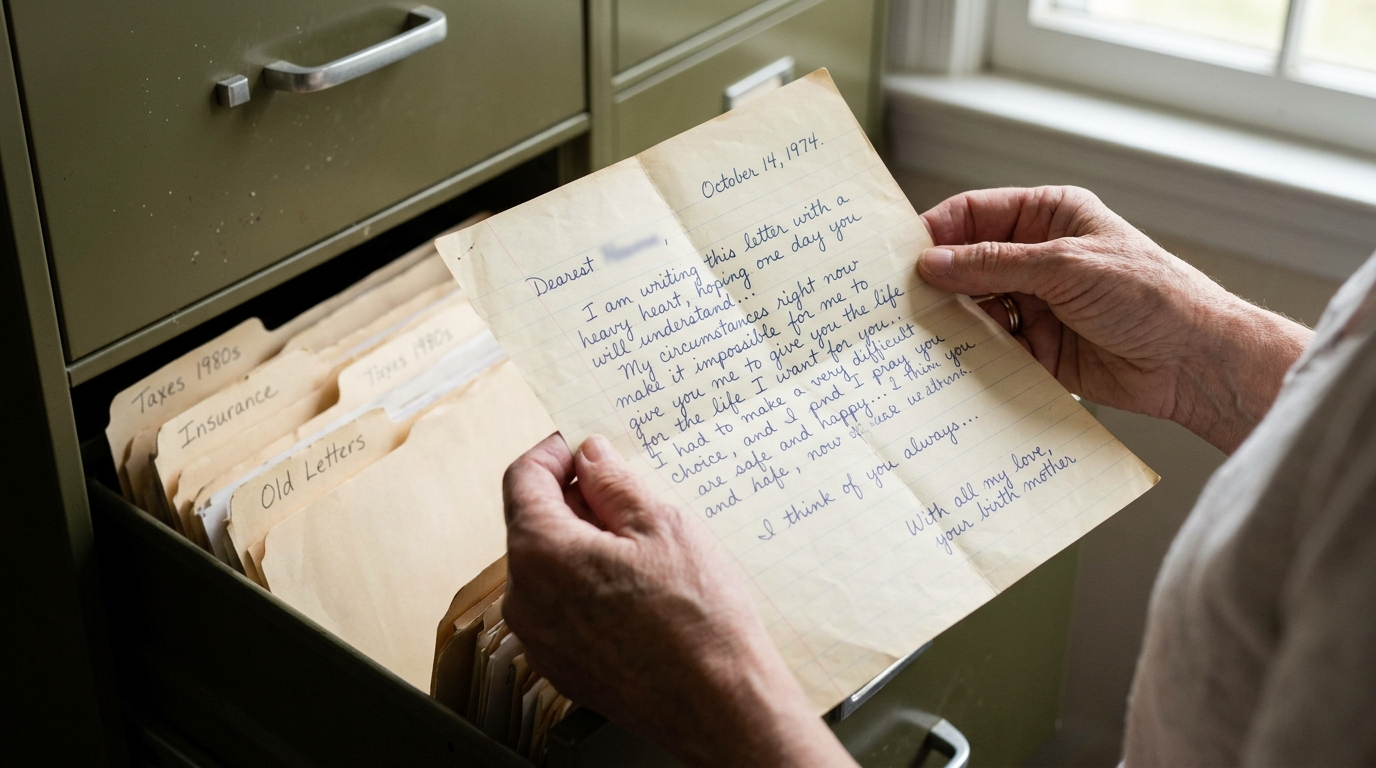 Taxes 1980s
Insurance
Taxes 1980s
Old Letters
October 14, 1974.
Dearest
I am writing this letter with a
heavy heart, hoping one day you
will understand...
My circumstances right now
make it impossible for me to
give you me to give you the life
for the life I want for you...
I had to make a very difficult
choice, and I pnd I pray you
are safe and happy... I think you
and hafe, now
I think of you always...
With all my love,
your birth mother